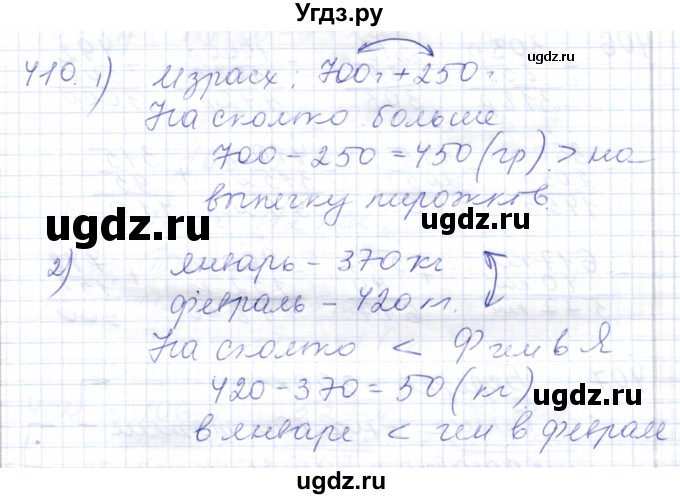 Угдз.ру
410. 1) Израсх: 700г + 250г
На сколько больше
700 - 250 = 450 (гр) > на
выпечку пирожков.
2) январь - 370 кг
февраль - 420 кг.
На сколько < Ф чем в Я.
420 - 370 = 50 (кг)
в январе < чем в феврале
ugdz.ru
ugdz.ru
ugdz.ru
ugdz.ru
ugdz.ru
ugdz.ru
Угдз.ру